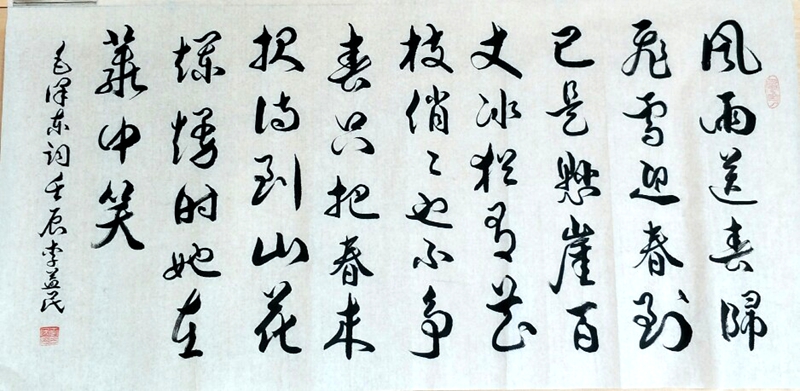 风雨送春归
飛雪迎春到
已是悬崖百
丈冰犹有花
枝俏俏也不争
春只把春来
报待到山花
烂熳时她在
丛中笑
毛泽东词壬辰李益民